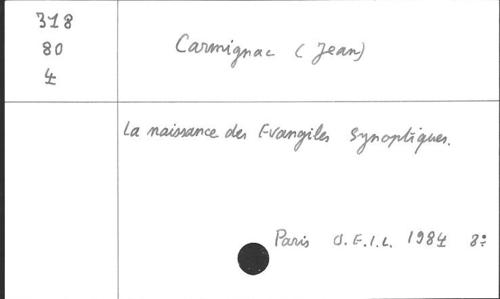 318
80
4
Carmignac (Jean)
La naissance des Evangiles Synoptiques.
Paris O.E.I.L. 1984 8º